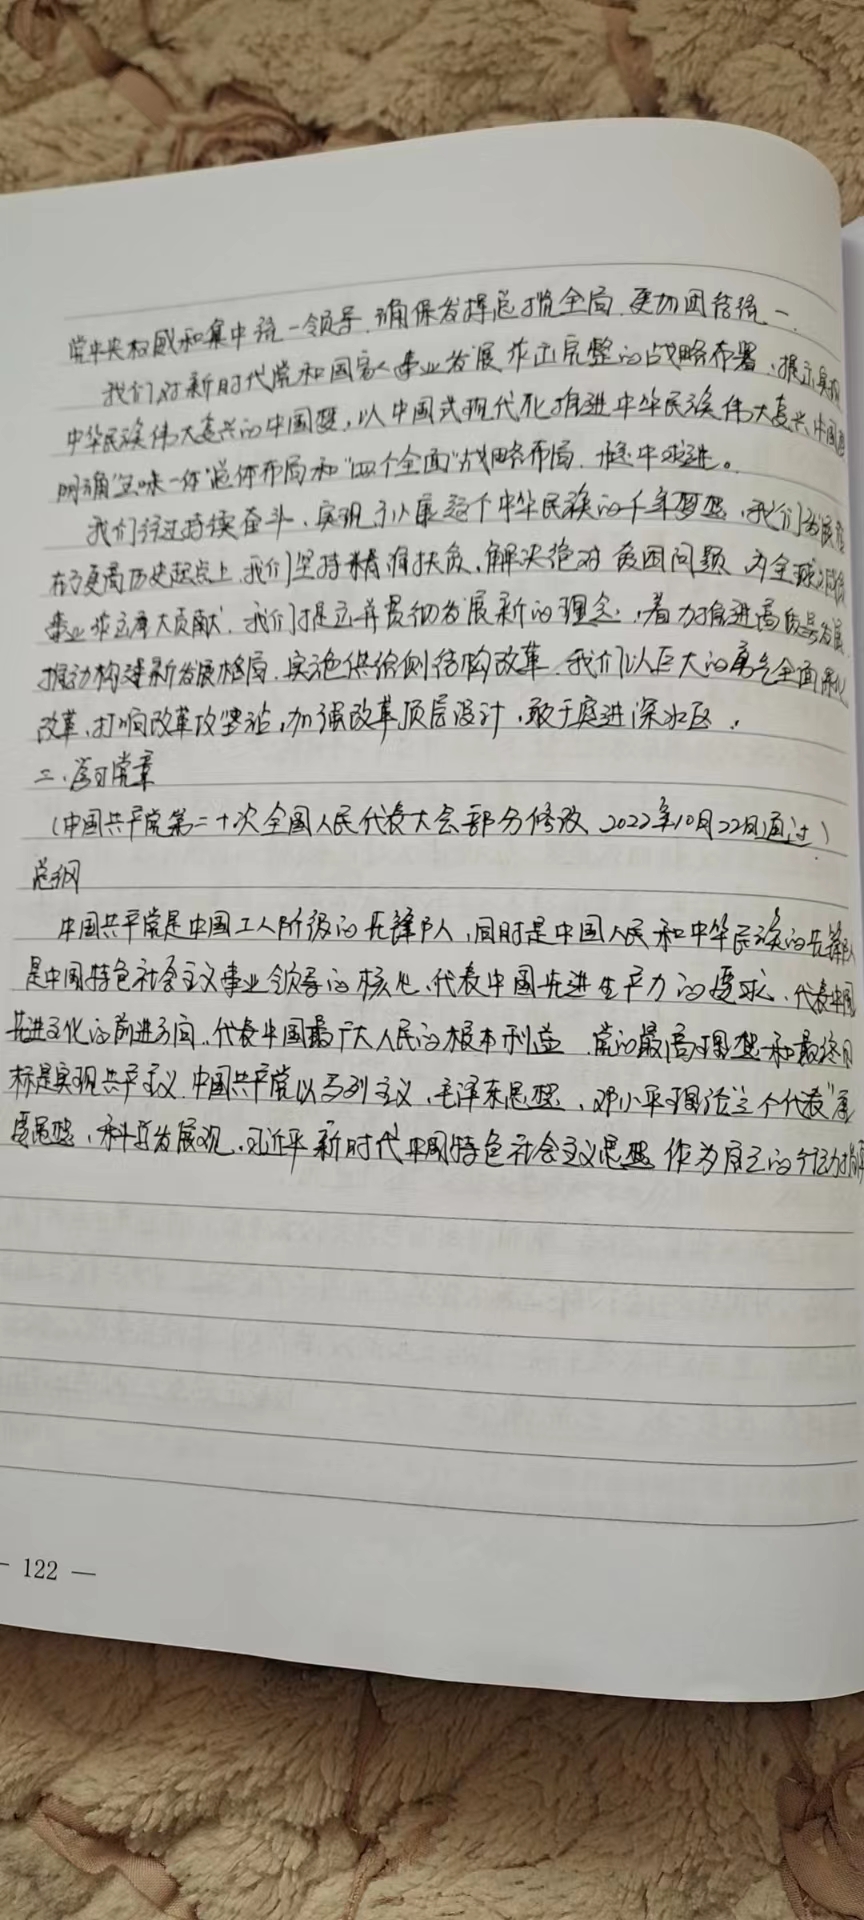 党中央权威和集中统一领导,确保发挥总揽全局,更加团结统一.
我们对新时代党和国家事业发展作出完整的战略布署、提出实现
中华民族伟大复兴的中国梦,以中国式现代化推进中华民族伟大复兴、中国
明确"五味一体"总体布局和"四个全面"战略布局.稳中求进。
我们经过持续奋斗、实现了小康这个中华民族的千年梦想,我们发展
在了更高历史起点上.我们坚持精准扶贫、解决绝对贫困问题,为全球减贫
事业作出重大贡献.我们提出并贯彻发展新的理念,着力推进高质量发展,
推动构建新发展格局.实施供给侧结构改革.我们以巨大的勇气全面深化
改革,打响改革攻坚战,加强改革顶层设计,敢于 进深水区.
二.学习党章
(中国共产党第二十次全国人民代表大会部分修改 2022年10月22日通过)
总纲
中国共产党是中国工人阶级的先锋队,同时是中国人民和中华民族的先锋队
是中国特色社会主义事业领导的核心、代表中国先进生产力的要求、代表中国
先进文化的前进方向、代表中国最广大人民的根本利益.党的最高理想和最终目
标是实现共产主义.中国共产党以马列主义、毛泽东思想、邓小平理论"三个代表"重
要思想、科学发展观、习近平新时代中国特色社会主义思想作为自己的行动指南
— 122 —